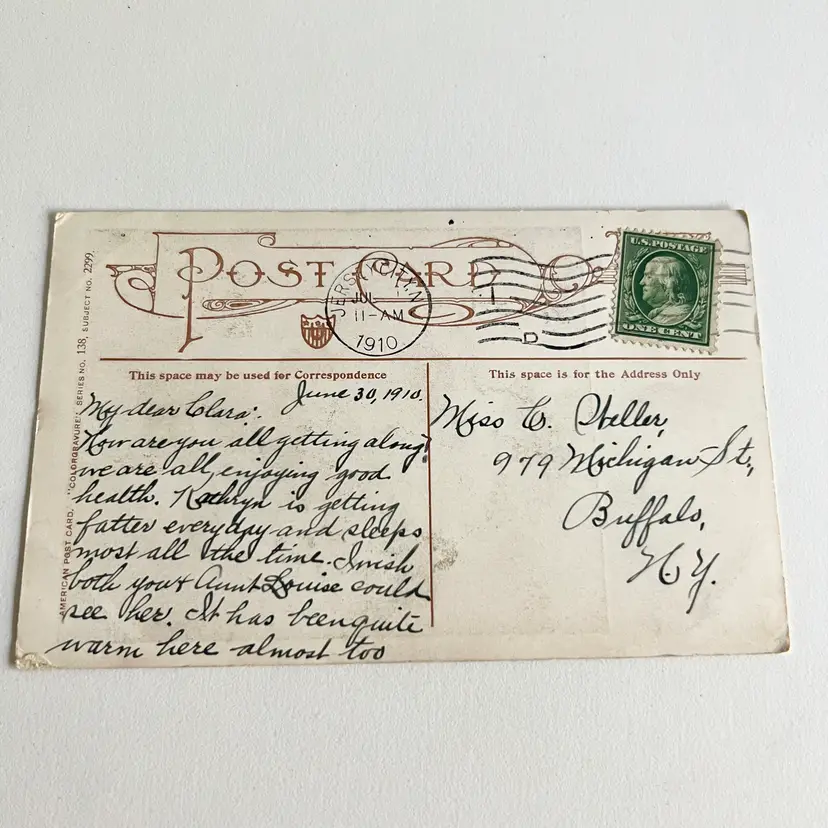 POST CARD
JERSEY CITY, N
JUL 1
11-AM
1910
D
U.S. POSTAGE
ONE CENT
AMERICAN POST CARD. "COLORGRAVURE" SERIES NO. 138, SUBJECT NO. 2299.
This space may be used for Correspondence
June 30, 1910.
My dear Clara:
How are you all getting along?
we are all enjoying good
health. Kathryn is getting
fatter every day and sleeps
most all the time. I wish
both you & Aunt Louise could
see her. It has been quite
warm here almost too
This space is for the Address Only
Miss C. Heller,
979 Michigan St.,
Buffalo,
N.Y.